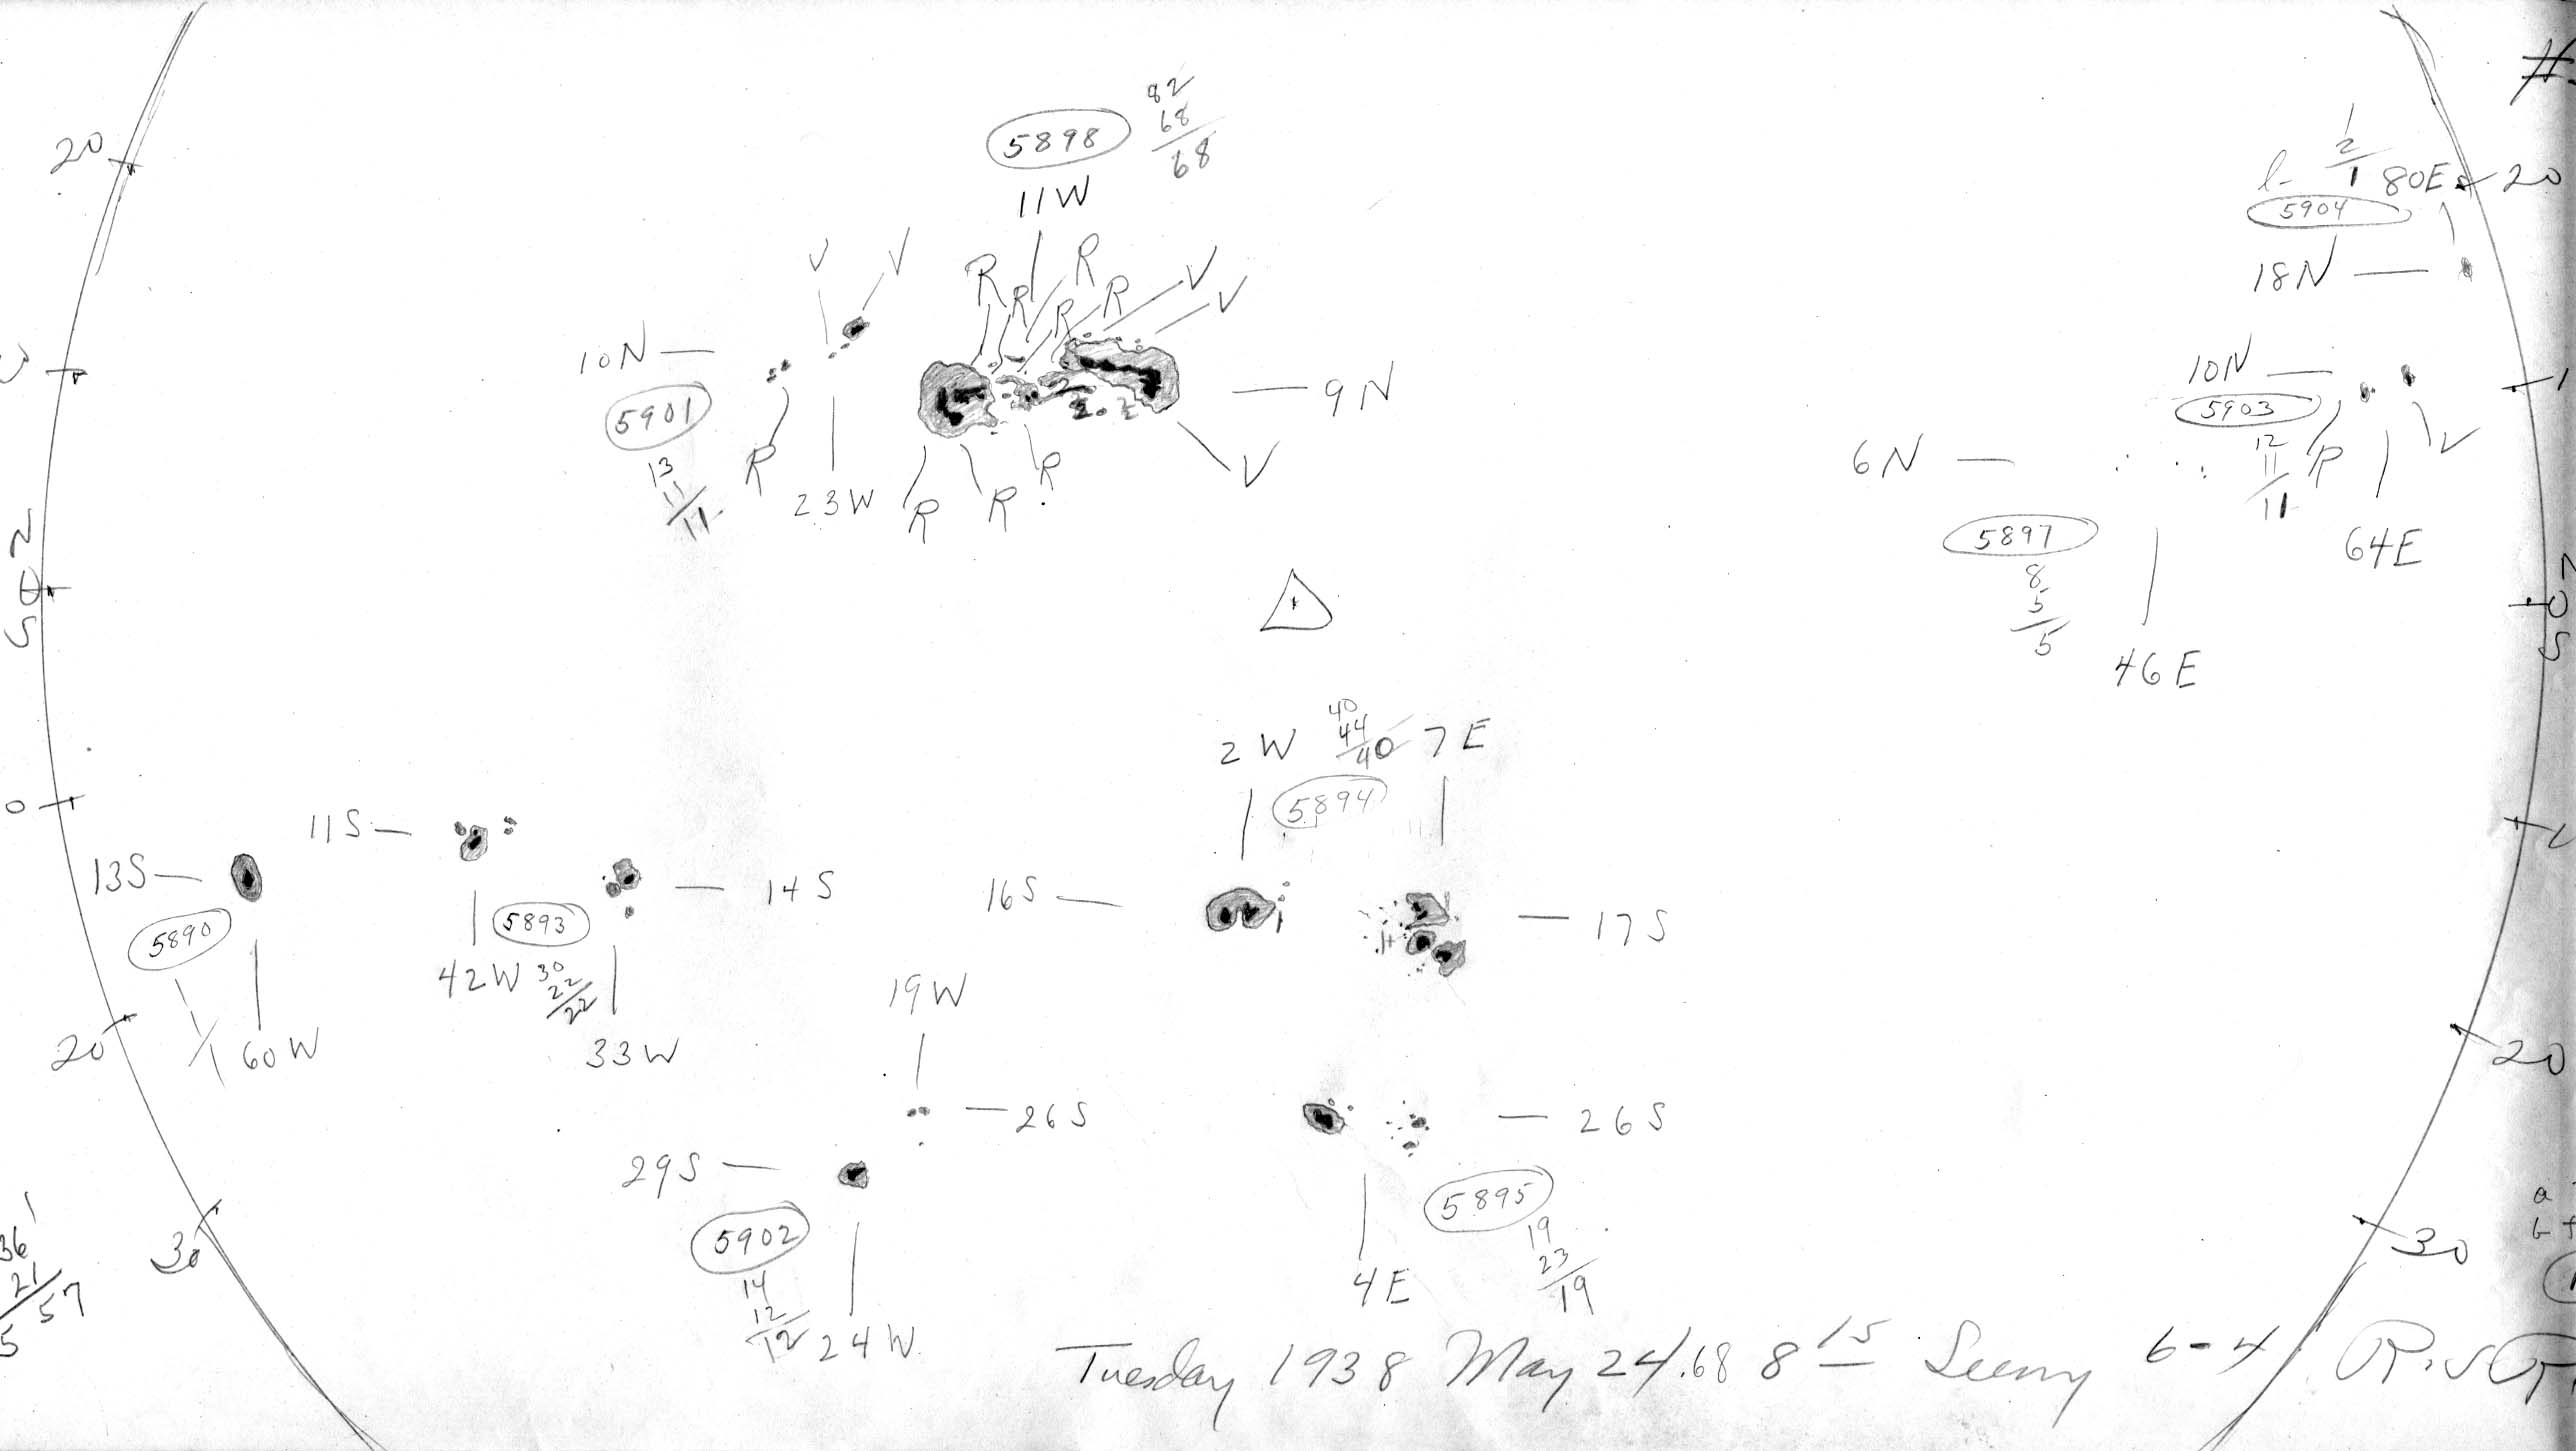 82
5898
68
68
11W
20
V
V
R
R
R
R
R
V
V
10N
5901
13
11
11
R
23W
R
R
R
V
9N
2
1
80E
20
5904
18N
10N
5903
12
11
11
R
V
64E
6N
5897
8
5
5
46E
2W
40
44
40
7E
5894
16S
17S
0
11S
13S
14S
5890
5893
42W
30
22
22
33W
1
1
60W
20
20
19W
26S
26S
29S
5902
14
12
12
24W
5895
19
23
19
4E
30
30
36
21
57
5
Tuesday 1938 May 24.68 8 15 Seeing 6-4